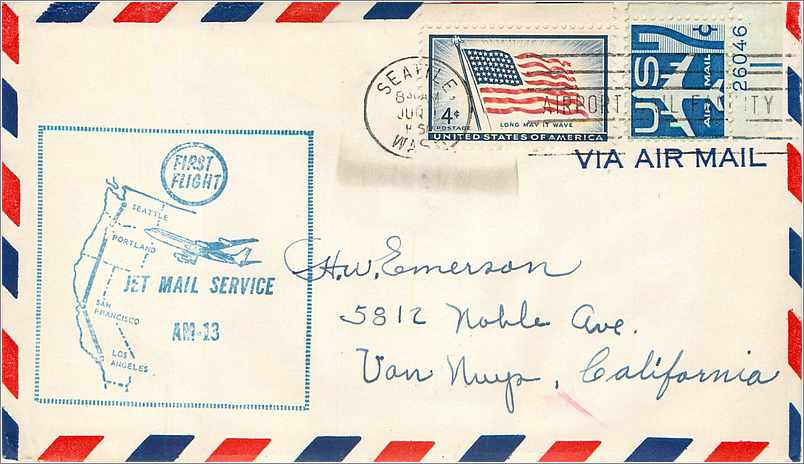 SEATTLE
WASH
4¢
POSTAGE
LONG MAY IT WAVE
UNITED STATES OF AMERICA
7¢
US
AIR MAIL
26046
AIRPORT MAIL FACILITY
VIA AIR MAIL
FIRST
FLIGHT
SEATTLE
PORTLAND
JET MAIL SERVICE
SAN
FRANCISCO
AM-13
LOS
ANGELES
H.W. Emerson
5812 Noble Ave.
Van Nuys, California